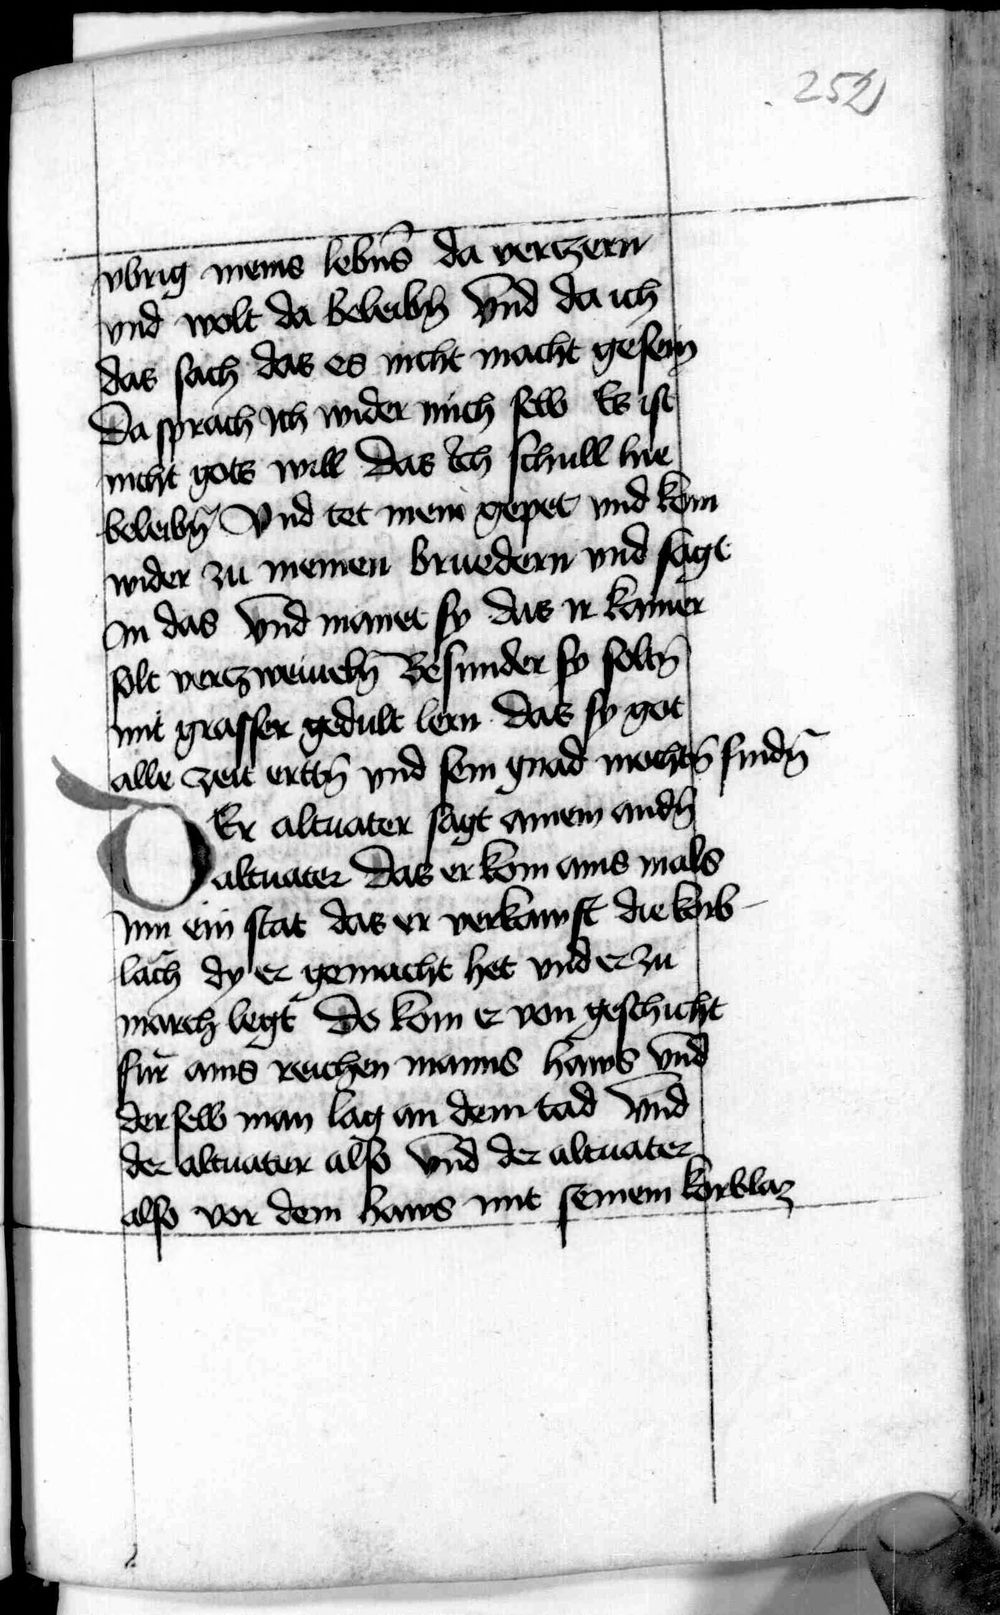 252
vbrig meins lebns̄ da verczern
vnd wolt da beleibn̄ Vnd da ich
das sach das es nicht macht gesein
Da sprach Ich wider mich selb Es ist
nicht gots will Das Ich schull hie
beleibn̄ Vnd tet mein gepet vnd kom
wider zu meinen bruedern vnd sagt
In das Vnd manet sy das ir kainer
solt verczweiueln̄ Besunder sy soltn̄
mit grasser gedult lern das sy got
alle zeit ertn̄ vnd sein gnad mochtn̄ findn̄
DEr altuater sagt ainem andn̄
altuater Das er kom ains mals
Inn ein stat das er verkauft die korb
lach dy er gemacht het vnd er zu
march legt Do kom er von geschicht
fur ains reichen manns haws Vnd
der selb man lag an dem tad Vnd
der altuater also Vnd der altuater
also vor dem haws mit seinem korblaz